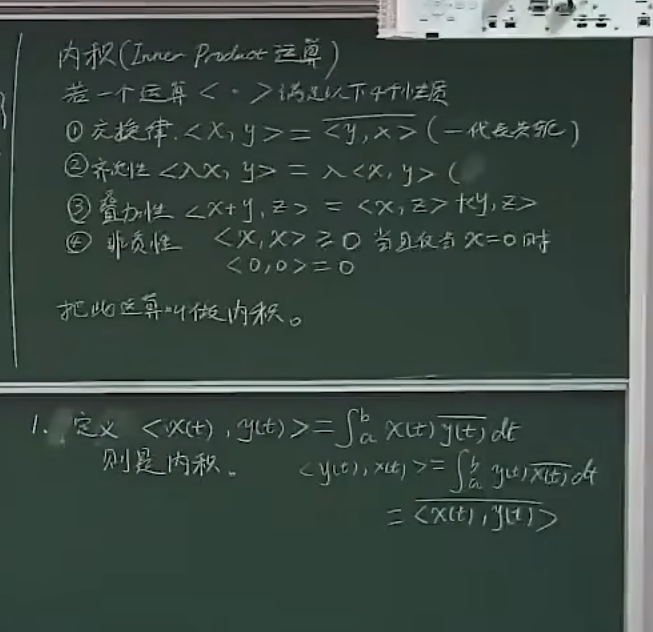 内积(Inner Product 运算)
若一个运算<·>满足以下4个性质
① 交换律.<x,y>=\overline{<y,x>}(一代表共轭)
② 齐次性 <λx,y>=λ<x,y>(
③ 叠加性 <x+y,z>=<x,z>+<y,z>
④ 非负性 <x,x>≥0 当且仅当 x=0时
<0,0>=0
把此运算叫做内积。
1. 定义 <x(t),y(t)>=∫_a^b x(t)\overline{y(t)}dt
则是内积。 <y(t),x(t)>=∫_a^b y(t)\overline{x(t)}dt
=\overline{<x(t),y(t)>}